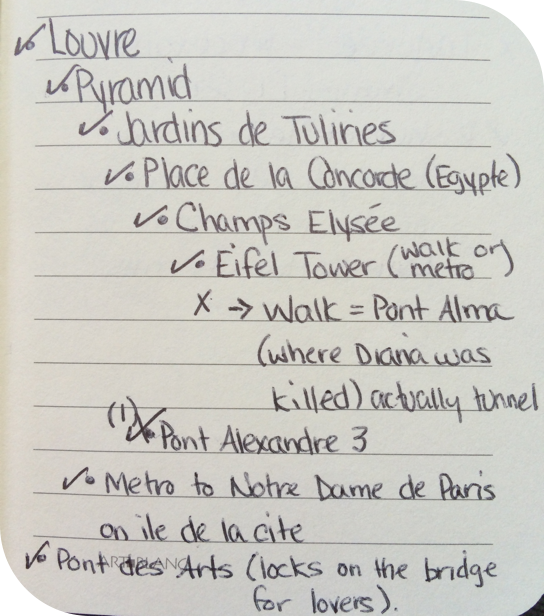 ✓• Louvre
✓• Pyramid
✓• Jardins de Tuliries
✓• Place de la Concorde (Egypte)
✓• Champs Elysée
✓• Eifel Tower (walk or metro)
X → Walk = Pont Alma
(where Diana was
killed) actually tunnel
(1) X• Pont Alexandre 3
✓• Metro to Notre Dame de Paris
on ile de la cite
✓• Pont des Arts (locks on the bridge
for lovers).